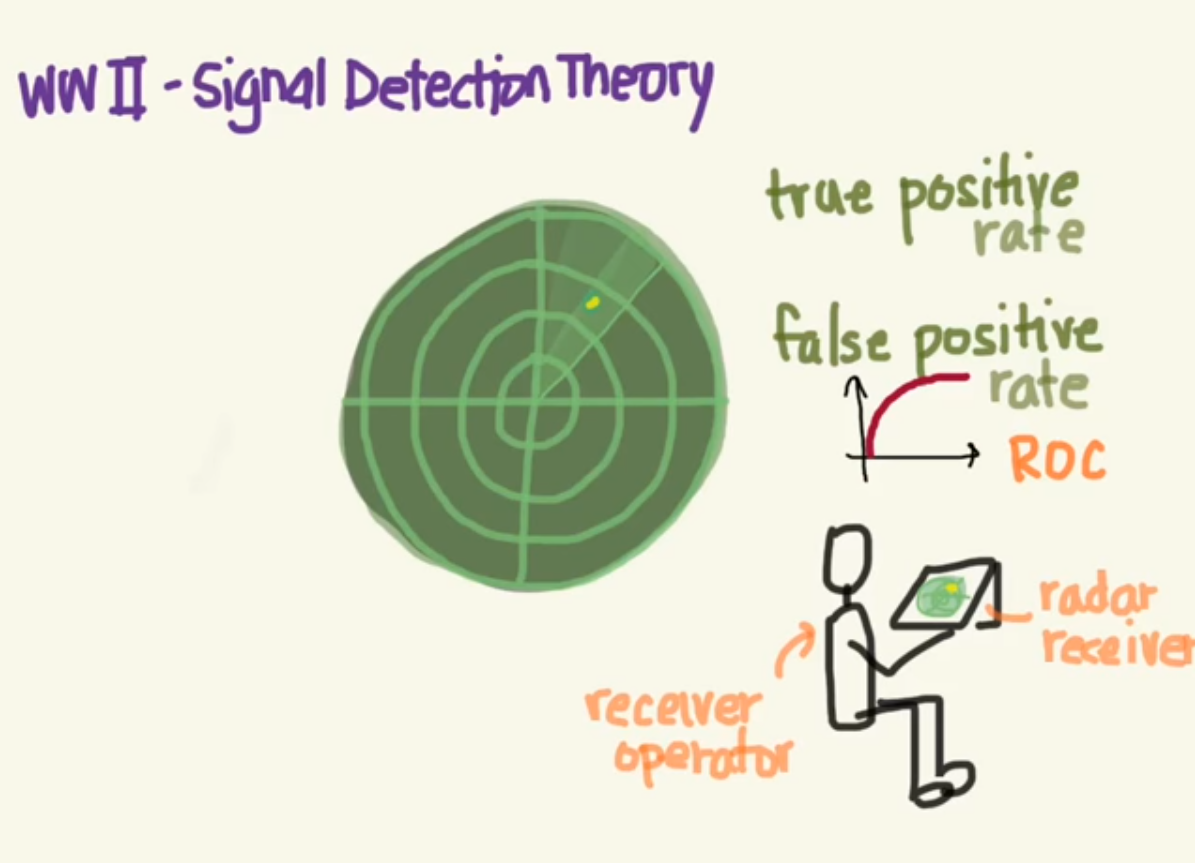 WW II - Signal Detection Theory
true positive
rate
false positive
rate
ROC
radar
receiver
receiver
operator